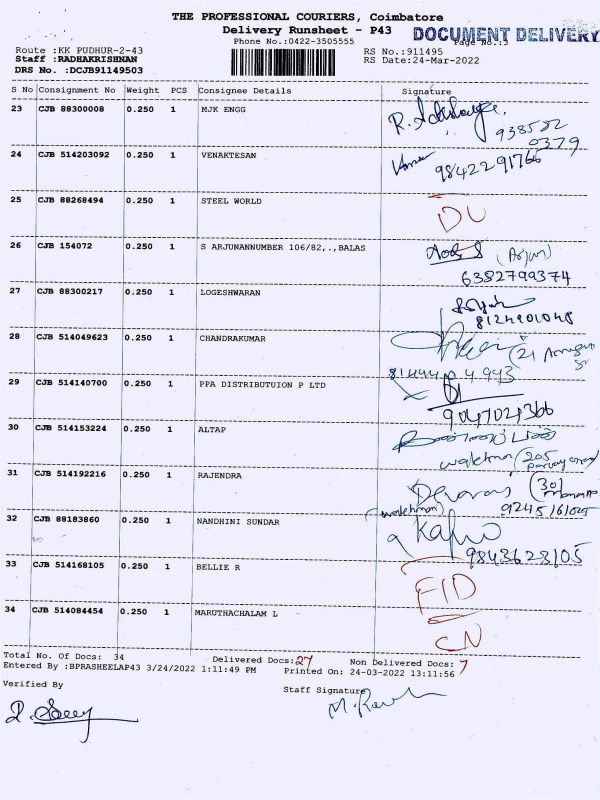 THE PROFESSIONAL COURIERS, Coimbatore
Delivery Runsheet - P43
DOCUMENT DELIVERY
Phone No.:0422-3505555
Page No.:3
Route :KK PUDHUR-2-43
RS No.:911495
Staff :RADHAKRISHNAN
RS Date:24-Mar-2022
DRS No. :DCJB91149503
S No Consignment No Weight PCS Consignee Details Signature
23 CJB 88300008 0.250 1 MJK ENGG
938582
0379
24 CJB 514203092 0.250 1 VENAKTESAN
9842291766
25 CJB 88268494 0.250 1 STEEL WORLD
DL
26 CJB 154072 0.250 1 S ARJUNANNUMBER 106/82,.,BALAS
(Arjun)
6382799374
27 CJB 88300217 0.250 1 LOGESHWARAN
8124901048
28 CJB 514049623 0.250 1 CHANDRAKUMAR
(21
29 CJB 514140700 0.250 1 PPA DISTRIBUTUION P LTD
30 CJB 514153224 0.250 1 ALTAP
(205
31 CJB 514192216 0.250 1 RAJENDRA
(301
32 CJB 88183860 0.250 1 NANDHINI SUNDAR
9843623105
33 CJB 514168105 0.250 1 BELLIE R
34 CJB 514084454 0.250 1 MARUTHACHALAM L
CN
Total No. Of Docs: 34 Delivered Docs:27 Non Delivered Docs:7
Entered By :BPRASHEELAP43 3/24/2022 1:11:49 PM Printed On: 24-03-2022 13:11:56
Verified By
Staff Signature